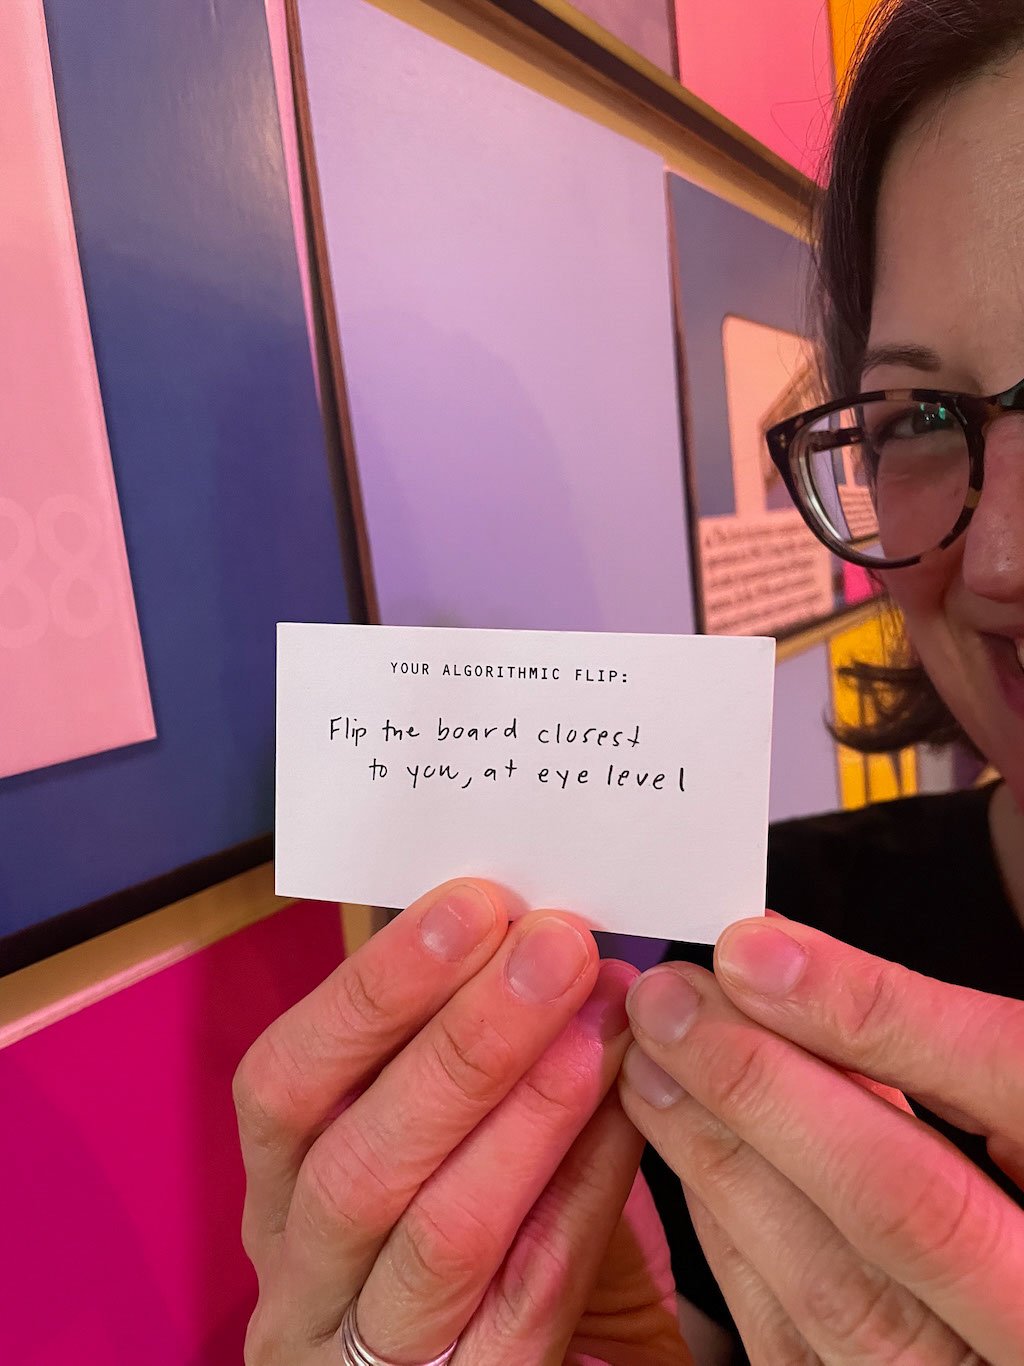 YOUR ALGORITHMIC FLIP:
Flip the board closest
to you, at eye level